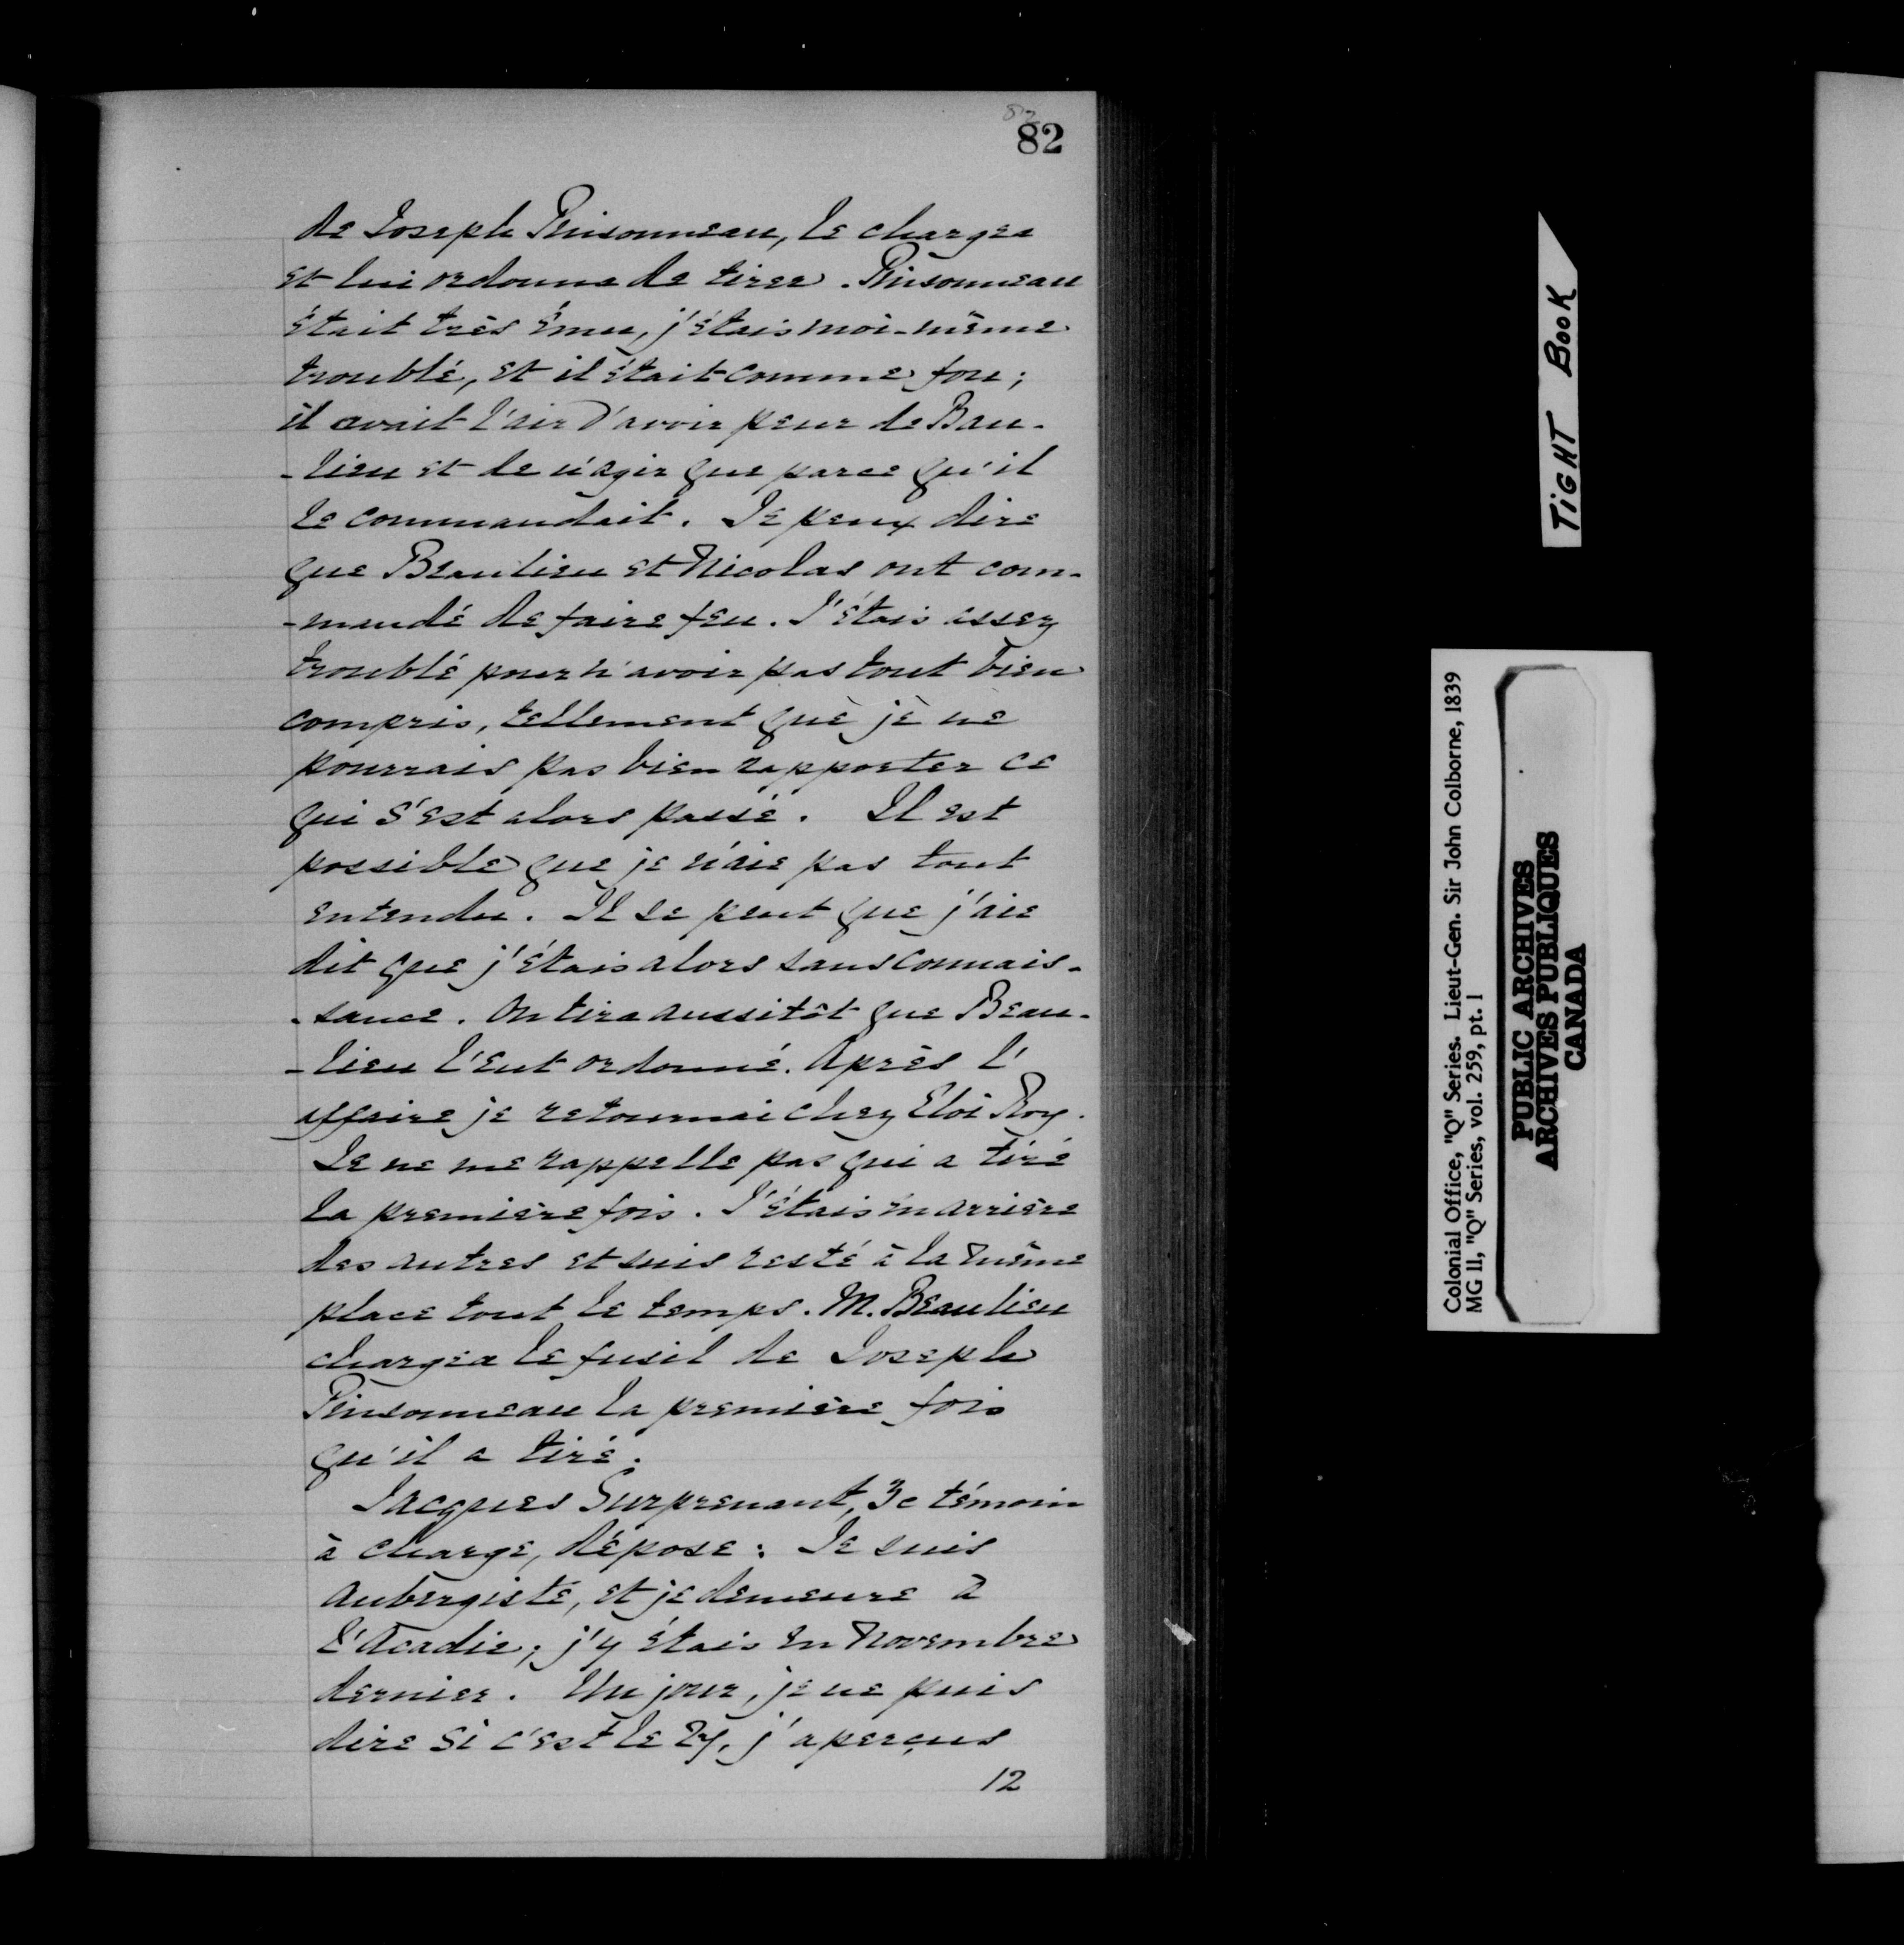 82
82
de Joseph Pinsonneau, le chargea
et lui ordonna de tirer. Pinsonneau
était très ému, j'étais moi-même
troublé, et il était comme fou;
il avait l'air d'avoir peur de Bau-
-lieu et de n'agir que parce qu'il
le commandait. Je peux dire
que Beaulieu et Nicolas ont com-
-mandé de faire feu. J'étais assez
troublé pour n'avoir pas tout bien
compris, tellement que je ne
pourrais pas bien rapporter ce
qui s'est alors passé. Il est
possible que je n'aie pas tout
entendu. Il se peut que j'aie
dit que j'étais alors sans connais-
-sance. On tira aussitôt que Beau-
-lieu l'eut ordonné. Après l'
affaire je retournai chez Eloi Roy.
Je ne me rappelle pas qui a tiré
la première fois. J'étais en arrière
des autres et suis resté à la même
place tout le temps. M. Beaulieu
chargea le fusil de Joseph
Pinsonneau la première fois
qu'il a tiré.
Jacques Surprenant, 3e témoin
à charge, dépose: Je suis
aubergiste, et je demeure à
l'Acadie; j'y étais en Novembre
dernier. Un jour, je ne puis
dire si c'est le j'aperçus
12
TIGHT BOOK
Colonial Office, "Q" Series. Lieut-Gen. Sir John Colborne, 1839
MG 11, "Q" Series, vol. 259, pt. 1
PUBLIC ARCHIVES
ARCHIVES PUBLIQUES
CANADA